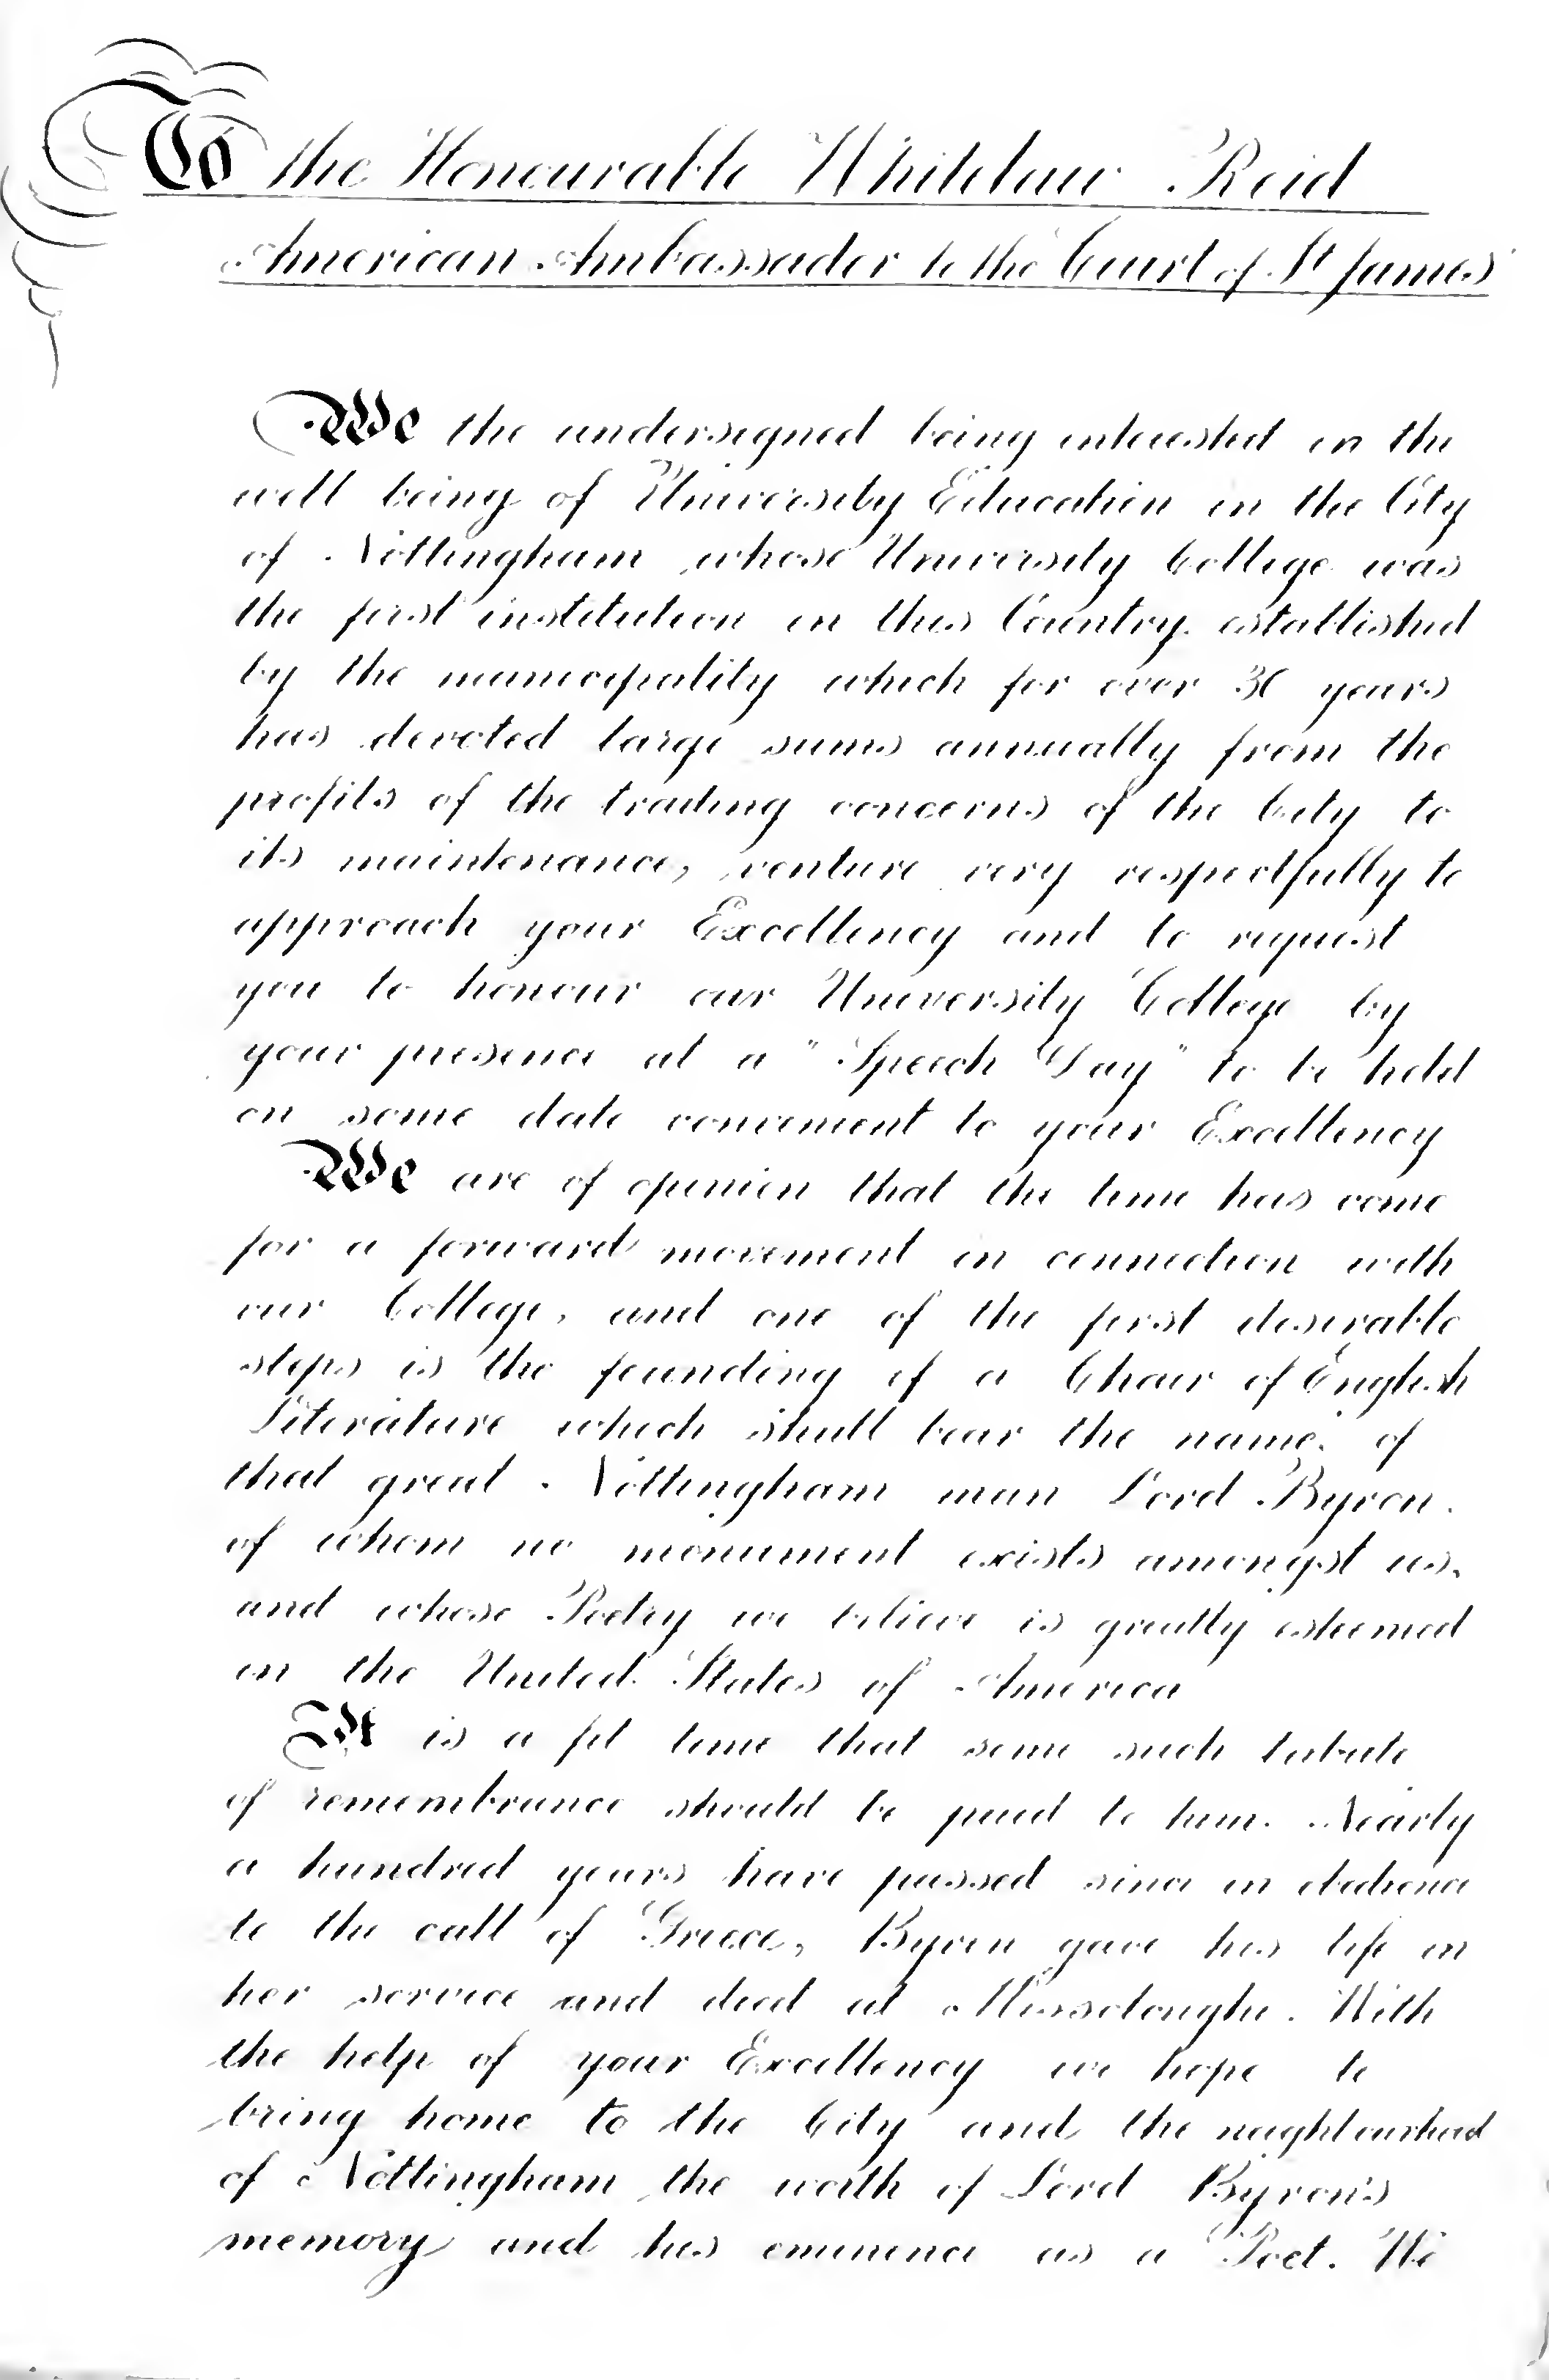 To the Honourable Whitelaw Reid
American Ambassador to the Court of St James'
We the undersigned being interested in the
well being of University Education in the City
of Nottingham whose University College was
the first institution in this Country established
by the municipality which for over 30 years
has devoted large sums annually from the
profits of the trading concerns of the City to
its maintenance, venture very respectfully to
approach your Excellency and to request
you to honour our University College by
your presence at a "Speech Day" to be held
on some date convenient to your Excellency
We are of opinion that the time has come
for a forward movement in connection with
our College, and one of the first desirable
steps is the founding of a Chair of English
Literature which shall bear the name of
that great Nottingham man Lord Byron.
of whom no monument exists amongst us,
and whose Poetry we believe is greatly esteemed
in the United States of America
It is a fit time that some such tribute
of remembrance should be paid to him. Nearly
a hundred years have passed since in obedience
to the call of Greece, Byron gave his life in
her service and died at Missolonghi. With
the help of your Excellency we hope to
bring home to the City and the neighbourhood
of Nottingham the worth of Lord Byron's
memory and his eminence as a Poet. We